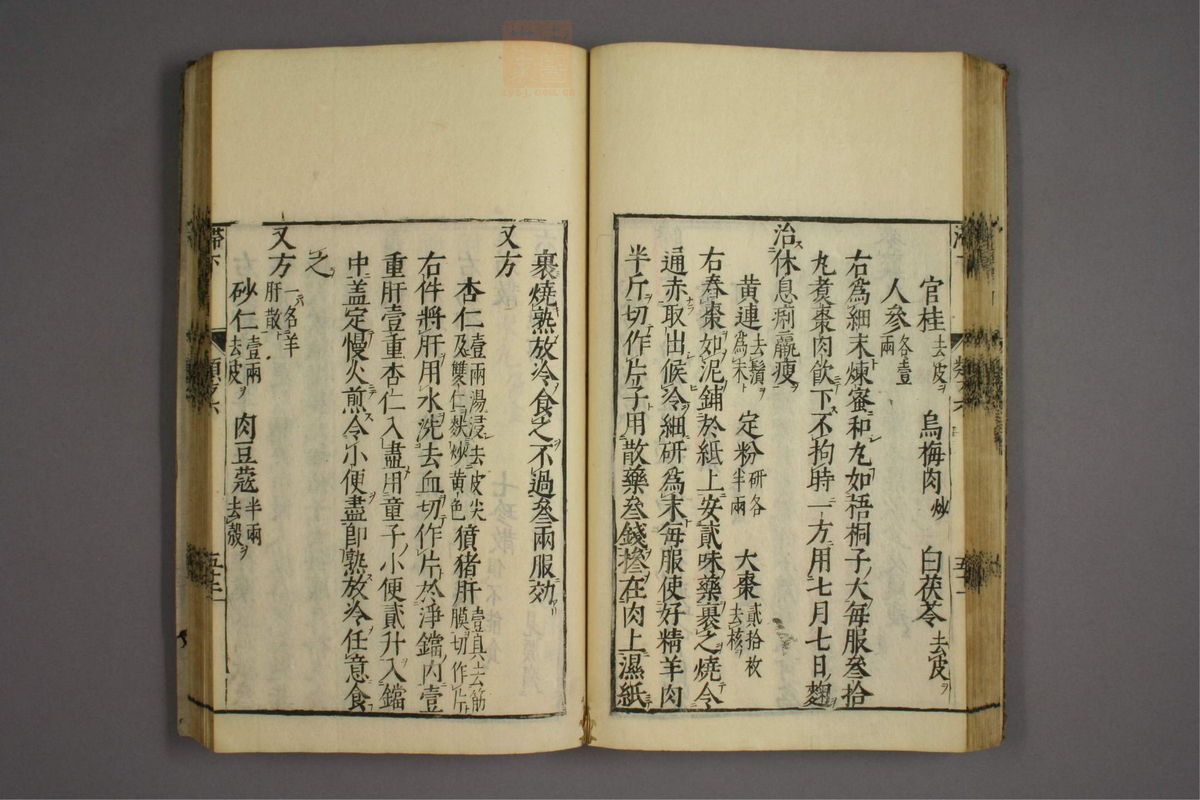 官桂去皮 烏梅肉炒 白茯苓去皮
人參各壹兩
右為細末煉蜜和丸如梧桐子大每服叁拾
丸煮棗肉飲下不拘時一方用七月七日麴
治休息痢羸瘦
黄連去鬚為末 定粉研各半兩 大棗貳拾枚去核
右舂棗如泥鋪於紙上安貳味藥裹之燒令
通赤取出候冷細研為末每服使好精羊肉
半斤切作片子用散藥叁錢摻在肉上濕紙
裹燒熟放冷食之不過叁兩服効
又方
杏仁壹兩湯浸去皮尖及雙仁麩炒黄色 獖猪肝壹具去筋膜切作片
右件將肝用水洗去血切作片於淨鐺内壹
重肝壹重杏仁入盡用童子小便貳升入鐺
中盖定慢火煎令小便盡即熟放冷任意食
之
又方一名羊肝散
砂仁壹兩去皮 肉豆蔻半兩去殼
滯下